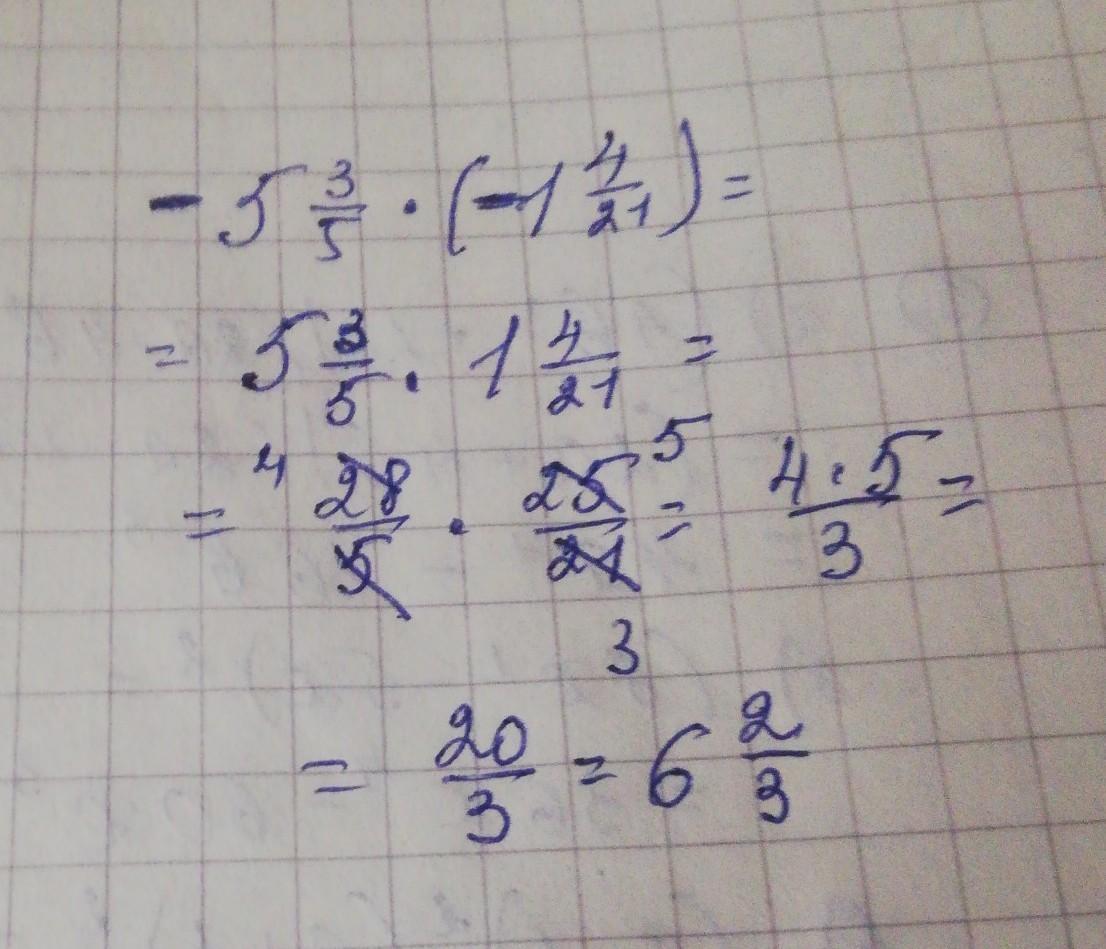 - 5 3/5 · (-1 4/21) =
= 5 3/5 · 1 4/21 =
= 4 28/5 · 25/21 5 3 = 4·5/3 =
= 20/3 = 6 2/3